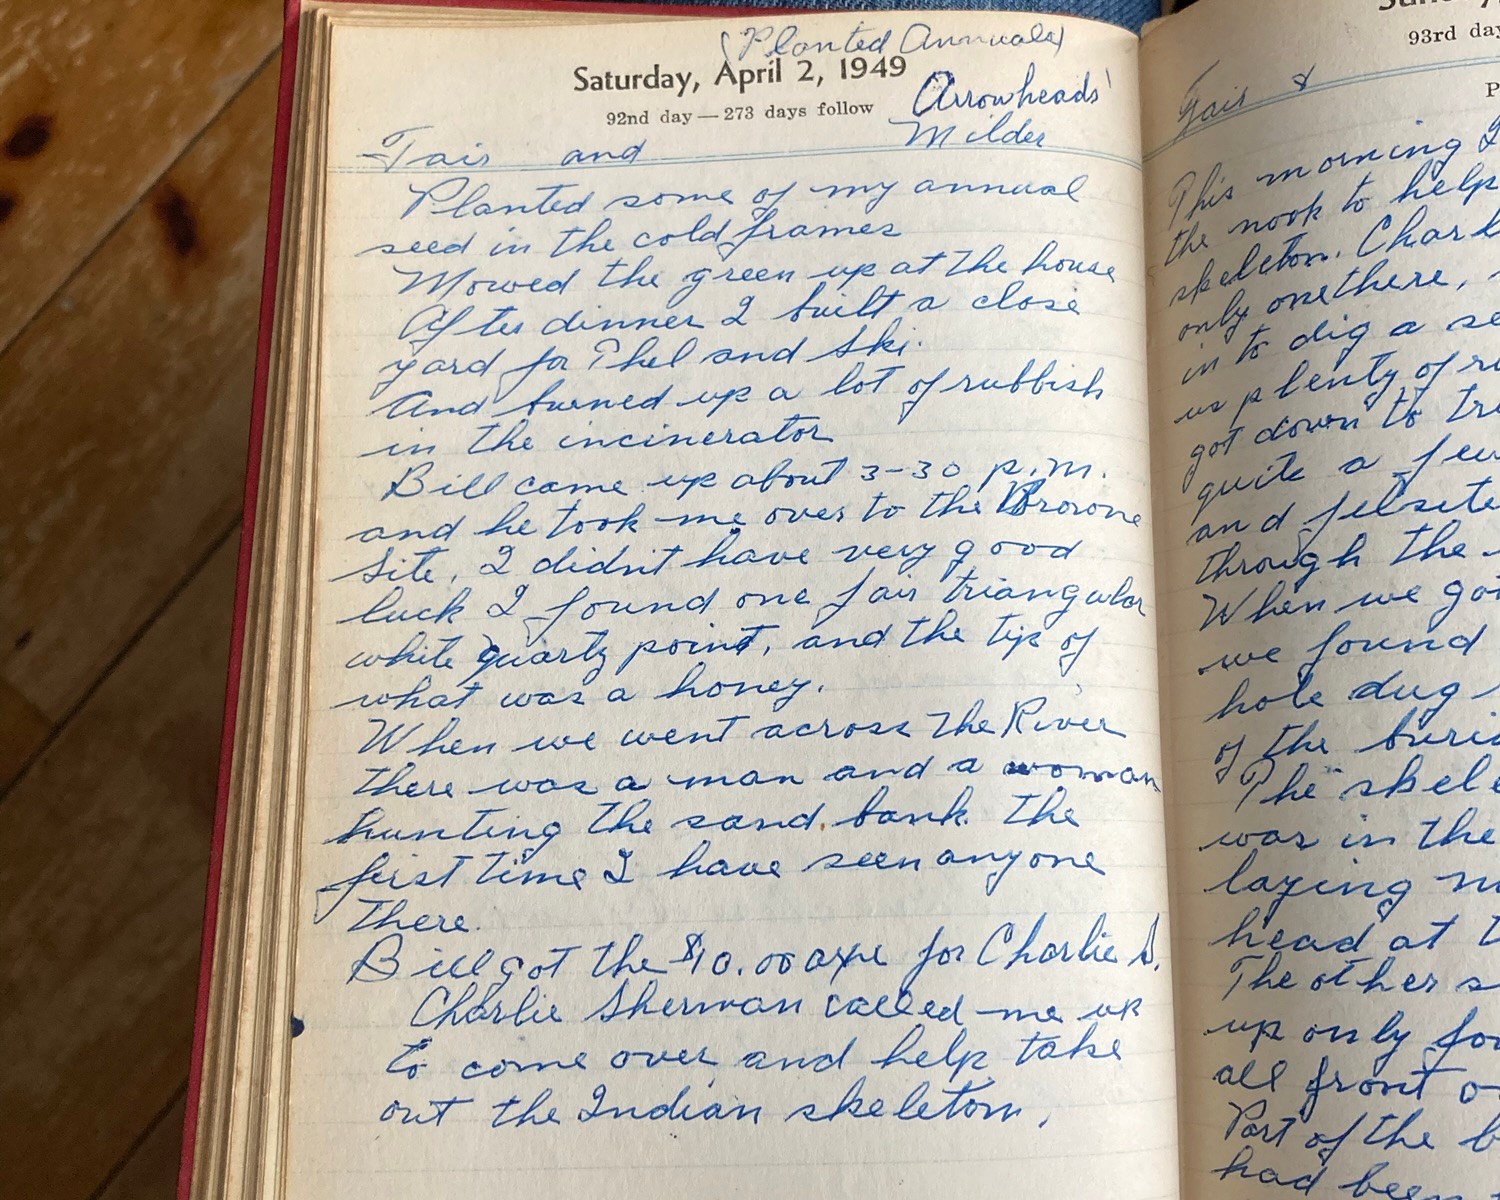 (Planted Annuals)
Saturday, April 2, 1949
92nd day — 273 days follow
Arrowheads
Fair and Milder
Planted some of my annual
seed in the cold frames
Mowed the green up at the house
After dinner I built a close
yard for Phel and Ski.
And burned up a lot of rubbish
in the incinerator
Bill came up about 3-30 p.m.
and he took me over to the
site, I didn't have very good
luck I found one fair triangular
white quartz point, and the tip of
what was a honey.
When we went across the River
there was a man and a woman
hunting the sand bank. The
first time I have seen anyone
there.
Bill got the $10.00 axe for Charlie S.
Charlie Sherman called me up
to come over and help take
out the Indian skeleton.
93rd day
Fair &
This morning I
the nook to help
skeleton. Charl
only one there,
in to dig a se
us plenty of
got down to
quite a few
and felsite
through the
When we got
we found
hole dug
of the buri
The skele
was in the
laying
head at
The other s
up only fo
all front o
Part of the b
had bee